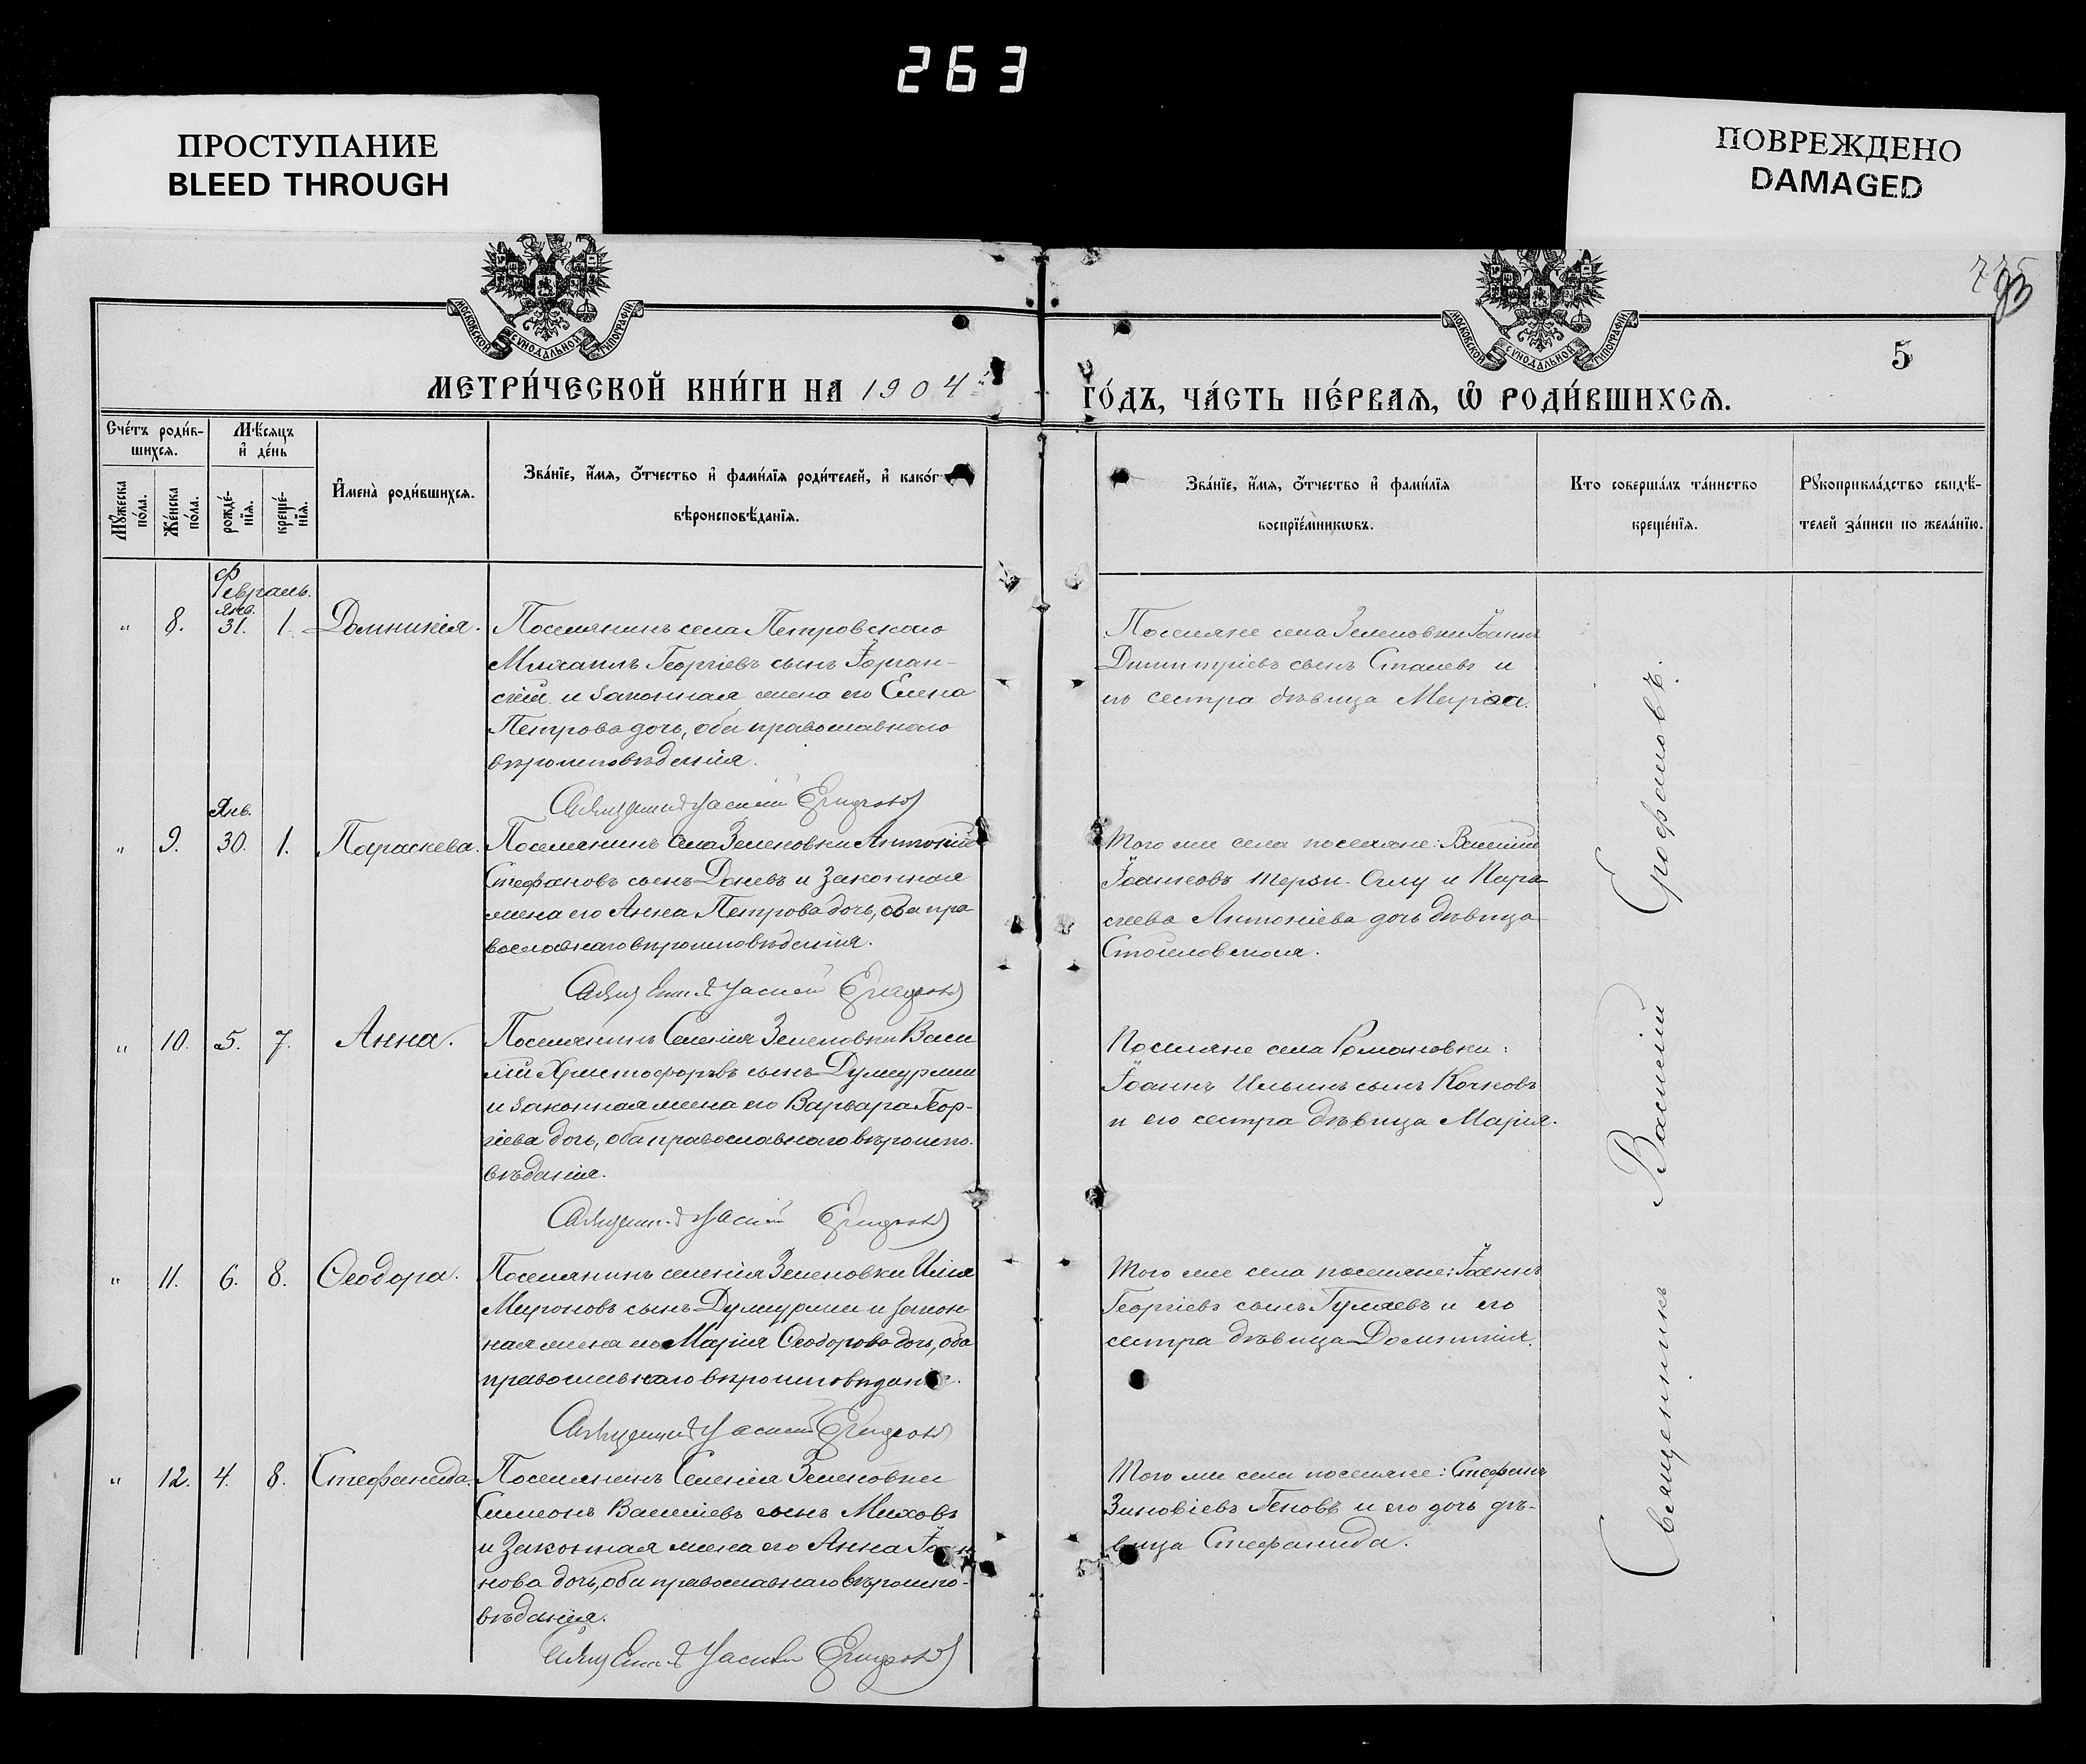 263
ПРОСТУПАНИЕ
BLEED THROUGH
ПОВРЕЖДЕНО
DAMAGED
МОСКОВСКОЙ СѴНОДАЛЬНОЙ ТИПОГРАФІИ
МОСКОВСКОЙ СѴНОДАЛЬНОЙ ТИПОГРАФІИ
93
5
МЕТРИ́ЧЕСКОЙ КНИ́ГИ НА 1904
ГО́ДЪ, ЧА́СТЬ ПЕ́РВАѦ, Ѡ҆ РОДИ́ВШИХСѦ.
Сче́тъ роди́в-
шихсѧ.
Мѣ́сѧцъ
и҆ де́нь
Мꙋ́жеска
по́ла.
Же́нска
по́ла.
рожде́-
нїѧ.
креще́-
нїѧ.
И҆мена̀ роди́вшихсѧ.
Зва́нїе, и҆́мѧ, ѻ҆́тчество и҆ фами́лїѧ роди́телей, и҆ како́г
вѣроисповѣ́данїѧ.
Зва́нїе, и҆́мѧ, ѻ҆́тчество и҆ фами́лїѧ
воспрїе́мникѡвъ.
Кто соверша́лъ та́инство
креще́нїѧ.
Рꙋкоприкла́дство свидѣ́-
телей за́писи по жела́нїю.
Февраль.
Янв.
" 8. 31. 1. Домникія.
Поселянинъ села Петровскаго
Михаилъ Георгіевъ сынъ
и законная жена его Елена
Петрова дочь, оба православнаго
вѣроисповѣданія.
Священникъ Василій
Поселяне села Зеленовки Іоаннъ
Димитріевъ сынъ Сталевъ и
его сестра дѣвица Марія.
Янв.
" 9. 30. 1. Параскева.
Поселянинъ села Зеленовки Антоній
Стефановъ сынъ Доневъ и законная
жена его Анна Петрова дочь, оба пра-
вославнаго вѣроисповѣданія.
Священникъ Василій
Того же села поселяне: Василій
Іоанновъ Терзи-Оглу и Пара-
скева Антоніева дочь дѣвица
Стоиловская.
" 10. 5. 7. Анна.
Поселянинъ Селенія Зеленовки Васи
лій Христофоровъ сынъ Думуржи
и законная жена его Варвара Геор-
гіева дочь, оба православнаго вѣроиспо-
вѣданія.
Священникъ Василій
Поселяне села Романовки:
Іоаннъ Ильинъ сынъ Кочковъ
и его сестра дѣвица Марія.
" 11. 6. 8. Ѳеодора.
Поселянинъ селенія Зеленовки Илія
Мироновъ сынъ Думуржи и закон
ная жена его Марія Ѳеодорова дочь, оба
православнаго вѣроисповѣданія.
Священникъ Василій
Того же села поселяне: Іоаннъ
Георгіевъ сынъ Гуляевъ и его
сестра дѣвица Домникія.
" 12. 4. 8. Стефанида.
Поселянинъ Селенія Зеленовки
Симеонъ Василіевъ сынъ Миховъ
и Законная жена его Анна Іоан
нова дочь, оба православнаго вѣроиспо-
вѣданія.
Священникъ Василій
Того же села поселяне: Стефанъ
Зиновіевъ Геновъ и его дочь дѣ-
вица Стефанида.
Священникъ Василій Ерофаловъ.